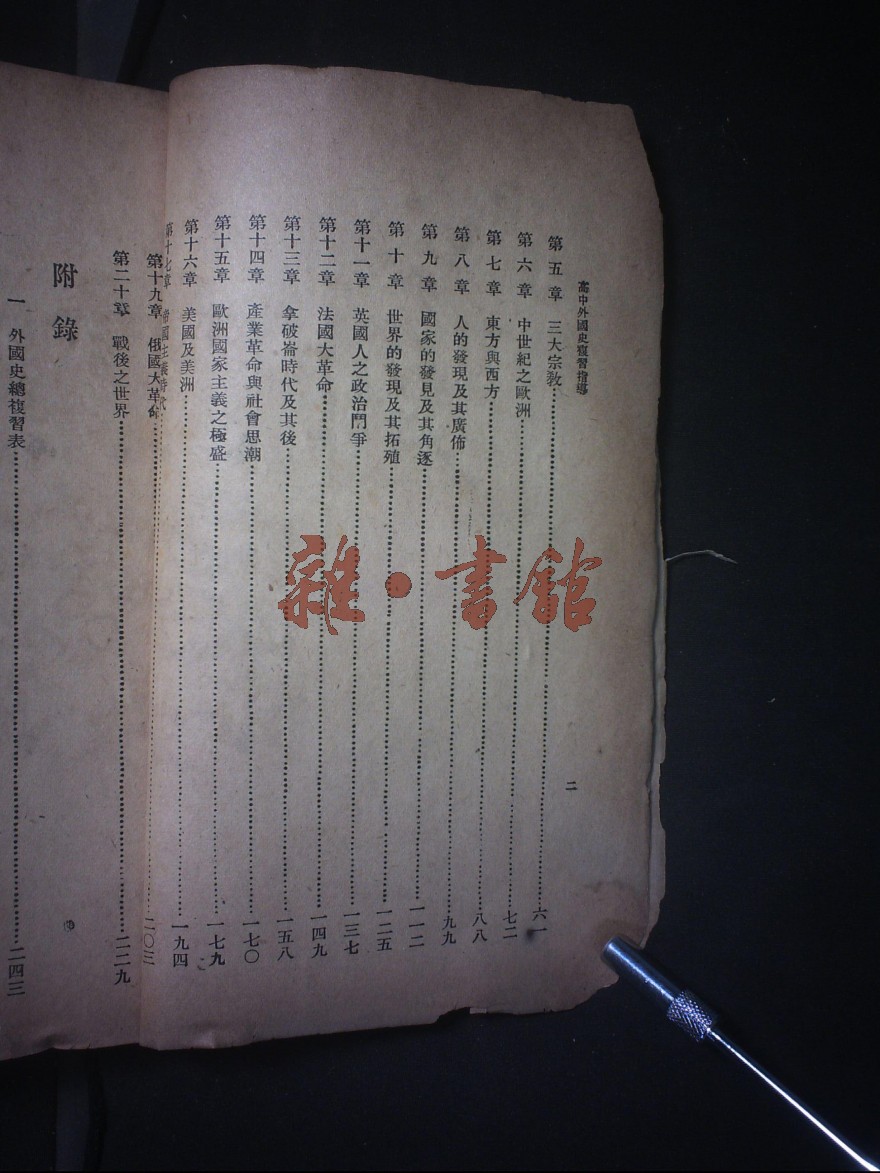 高中外國史復習指導
二
第五章 三大宗教……六一
第六章 中世紀之歐洲……七二
第七章 東方與西方……八八
第八章 人的發現及其廣佈……九九
第九章 國家的發見及其角逐……一一二
第十章 世界的發現及其拓殖……一二五
第十一章 英國人之政治鬥爭……一三七
第十二章 法國大革命……一四九
第十三章 拿破崙時代及其後……一五八
第十四章 產業革命與社會思潮……一七〇
第十五章 歐洲國家主義之極盛……一七九
第十六章 美國及美洲……一九四
第十七章 帝國主義時代……
第十九章 俄國大革命……二〇三
第二十章 戰後之世界……二二九
附錄
一 外國史總複習表……二四三
雜·書館